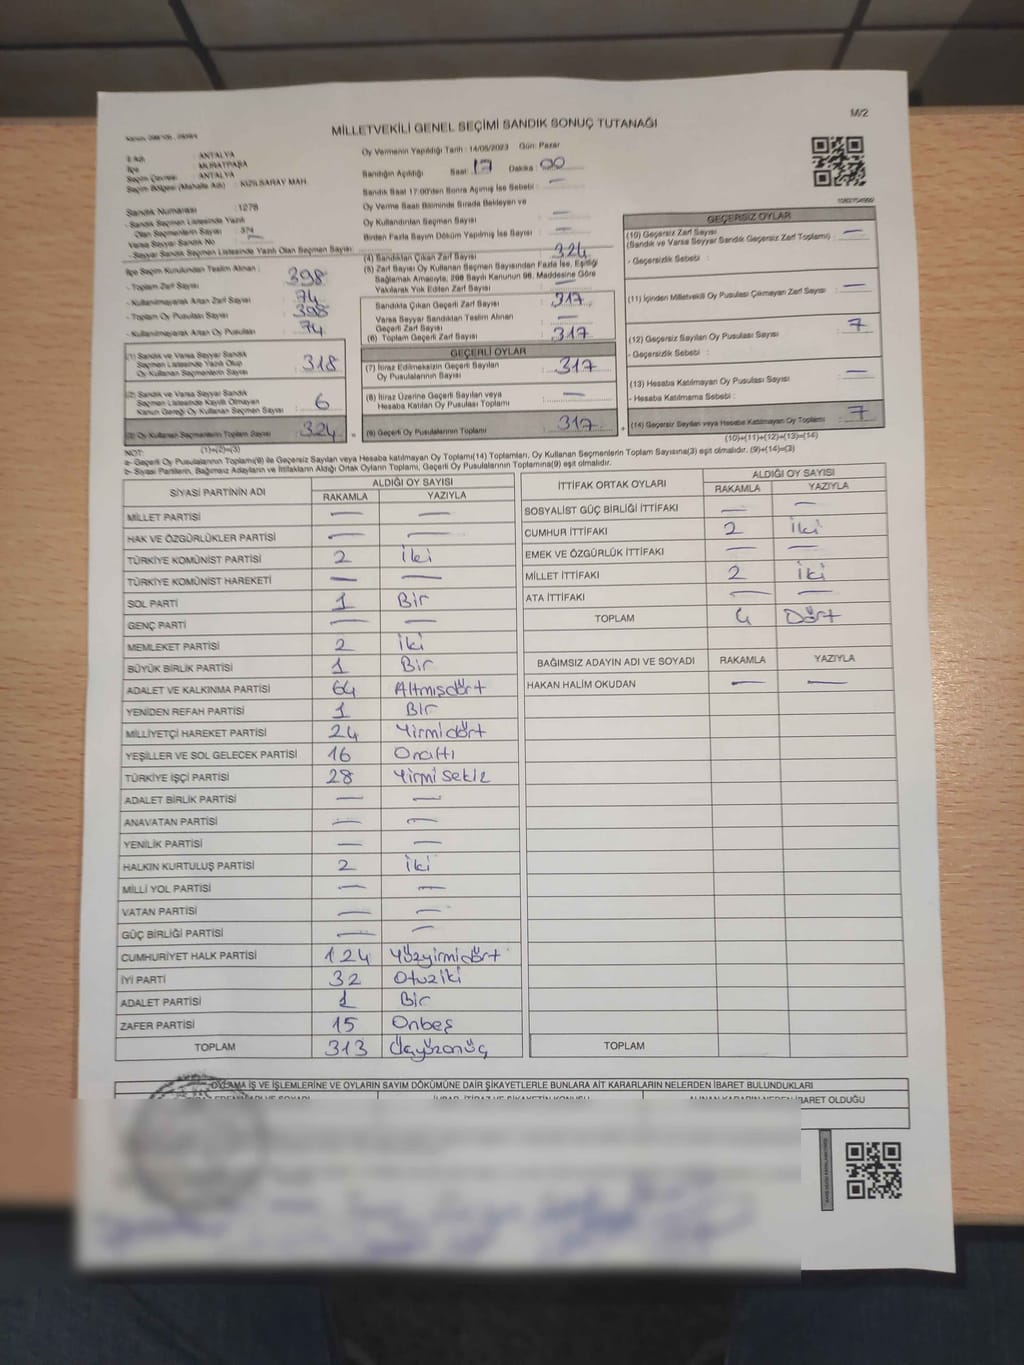 M/2
MİLLETVEKİLİ GENEL SEÇİMİ SANDIK SONUÇ TUTANAĞI
İl Adı : ANTALYA
İlçe : MURATPAŞA
Seçim Çevresi : ANTALYA
Seçim Bölgesi (Mahalle Adı) : KIZILSARAY MAH.
Oy Vermenin Yapıldığı Tarih : 14/05/2023 Gün: Pazar
Sandığın Açıldığı Saat : 17 Dakika : 00
Sandık Saat 17:00'den Sonra Açılmış İse Sebebi : —
Oy Verme Saati Bitiminde Sırada Bekleyen ve
Oy Kullandırılan Seçmen Sayısı : —
Birden Fazla Sayım Döküm Yapılmış İse Sayısı : —
Sandık Numarası : 1278
- Sandık Seçmen Listesinde Yazılı
Olan Seçmenlerin Sayısı : 374
Varsa Seyyar Sandık No : —
- Seyyar Sandık Seçmen Listesinde Yazılı Olan Seçmen Sayısı :
İlçe Seçim Kurulundan Teslim Alınan :
- Toplam Zarf Sayısı : 398
- Kullanılmayarak Artan Zarf Sayısı : 74
- Toplam Oy Pusulası Sayısı : 398
- Kullanılmayarak Artan Oy Pusulası : 74
(1) Sandık ve Varsa Seyyar Sandık
Seçmen Listesinde Yazılı Olup
Oy Kullanan Seçmenlerin Sayısı : 318
(2) Sandık ve Varsa Seyyar Sandık
Seçmen Listesinde Kayıtlı Olmayan
Kanun Gereği Oy Kullanan Seçmen Sayısı : 6
(3) Oy Kullanan Seçmenlerin Toplam Sayısı : 324
(1)+(2)=(3)
(4) Sandıktan Çıkan Zarf Sayısı : 324
(5) Zarf Sayısı Oy Kullanan Seçmen Sayısından Fazla İse, Eşitliği
Sağlamak Amacıyla, 298 Sayılı Kanunun 98. Maddesine Göre
Yakılarak Yok Edilen Zarf Sayısı : —
Sandıkta Çıkan Geçerli Zarf Sayısı : 317
Varsa Seyyar Sandıktan Teslim Alınan
Geçerli Zarf Sayısı : —
(6) Toplam Geçerli Zarf Sayısı : 317
GEÇERLİ OYLAR
(7) İtiraz Edilmeksizin Geçerli Sayılan
Oy Pusulalarının Sayısı : 317
(8) İtiraz Üzerine Geçerli Sayılan veya
Hesaba Katılan Oy Pusulası Toplamı : —
= (9) Geçerli Oy Pusulalarının Toplamı : 317 +
GEÇERSİZ OYLAR
(10) Geçersiz Zarf Sayısı : —
(Sandık ve Varsa Seyyar Sandık Geçersiz Zarf Toplamı)
- Geçersizlik Sebebi :
(11) İçinden Milletvekili Oy Pusulası Çıkmayan Zarf Sayısı : —
(12) Geçersiz Sayılan Oy Pusulası Sayısı : 7
- Geçersizlik Sebebi :
(13) Hesaba Katılmayan Oy Pusulası Sayısı : —
- Hesaba Katılmama Sebebi :
(14) Geçersiz Sayılan veya Hesaba Katılmayan Oy Toplamı : 7
(10)+(11)+(12)+(13)=(14)
NOT:
a- Geçerli Oy Pusulalarının Toplamı(9) ile Geçersiz Sayılan veya Hesaba Katılmayan Oy Toplamı(14) Toplamları, Oy Kullanan Seçmenlerin Toplam Sayısına(3) eşit olmalıdır. (9)+(14)=(3)
b- Siyasi Partilerin, Bağımsız Adayların ve İttifakların Aldığı Ortak Oyların Toplamı, Geçerli Oy Pusulalarının Toplamına(9) eşit olmalıdır.
SİYASİ PARTİNİN ADI ALDIĞI OY SAYISI
RAKAMLA YAZIYLA
MİLLET PARTİSİ — —
HAK VE ÖZGÜRLÜKLER PARTİSİ — —
TÜRKİYE KOMÜNİST PARTİSİ 2 iki
TÜRKİYE KOMÜNİST HAREKETİ — —
SOL PARTİ 1 Bir
GENÇ PARTİ — —
MEMLEKET PARTİSİ 2 iki
BÜYÜK BİRLİK PARTİSİ 1 Bir
ADALET VE KALKINMA PARTİSİ 64 Altmışdört
YENİDEN REFAH PARTİSİ 1 Bir
MİLLİYETÇİ HAREKET PARTİSİ 24 Yirmidört
YEŞİLLER VE SOL GELECEK PARTİSİ 16 Onaltı
TÜRKİYE İŞÇİ PARTİSİ 28 Yirmi sekiz
ADALET BİRLİK PARTİSİ — —
ANAVATAN PARTİSİ — —
YENİLİK PARTİSİ — —
HALKIN KURTULUŞ PARTİSİ 2 iki
MİLLİ YOL PARTİSİ — —
VATAN PARTİSİ — —
GÜÇ BİRLİĞİ PARTİSİ — —
CUMHURİYET HALK PARTİSİ 124 Yüzyirmidört
İYİ PARTİ 32 Otuziki
ADALET PARTİSİ 1 Bir
ZAFER PARTİSİ 15 Onbeş
TOPLAM 313 Üçyüzonüç
İTTİFAK ORTAK OYLARI ALDIĞI OY SAYISI
RAKAMLA YAZIYLA
SOSYALİST GÜÇ BİRLİĞİ İTTİFAKI — —
CUMHUR İTTİFAKI 2 iki
EMEK VE ÖZGÜRLÜK İTTİFAKI — —
MİLLET İTTİFAKI 2 iki
ATA İTTİFAKI — —
TOPLAM 4 Dört
BAĞIMSIZ ADAYIN ADI VE SOYADI RAKAMLA YAZIYLA
HAKAN HALİM OKUDAN — —
TOPLAM
OYLAMA İŞ VE İŞLEMLERİNE VE OYLARIN SAYIM DÖKÜMÜNE DAİR ŞİKAYETLERLE BUNLARA AİT KARARLARIN NELERDEN İBARET BULUNDUKLARI